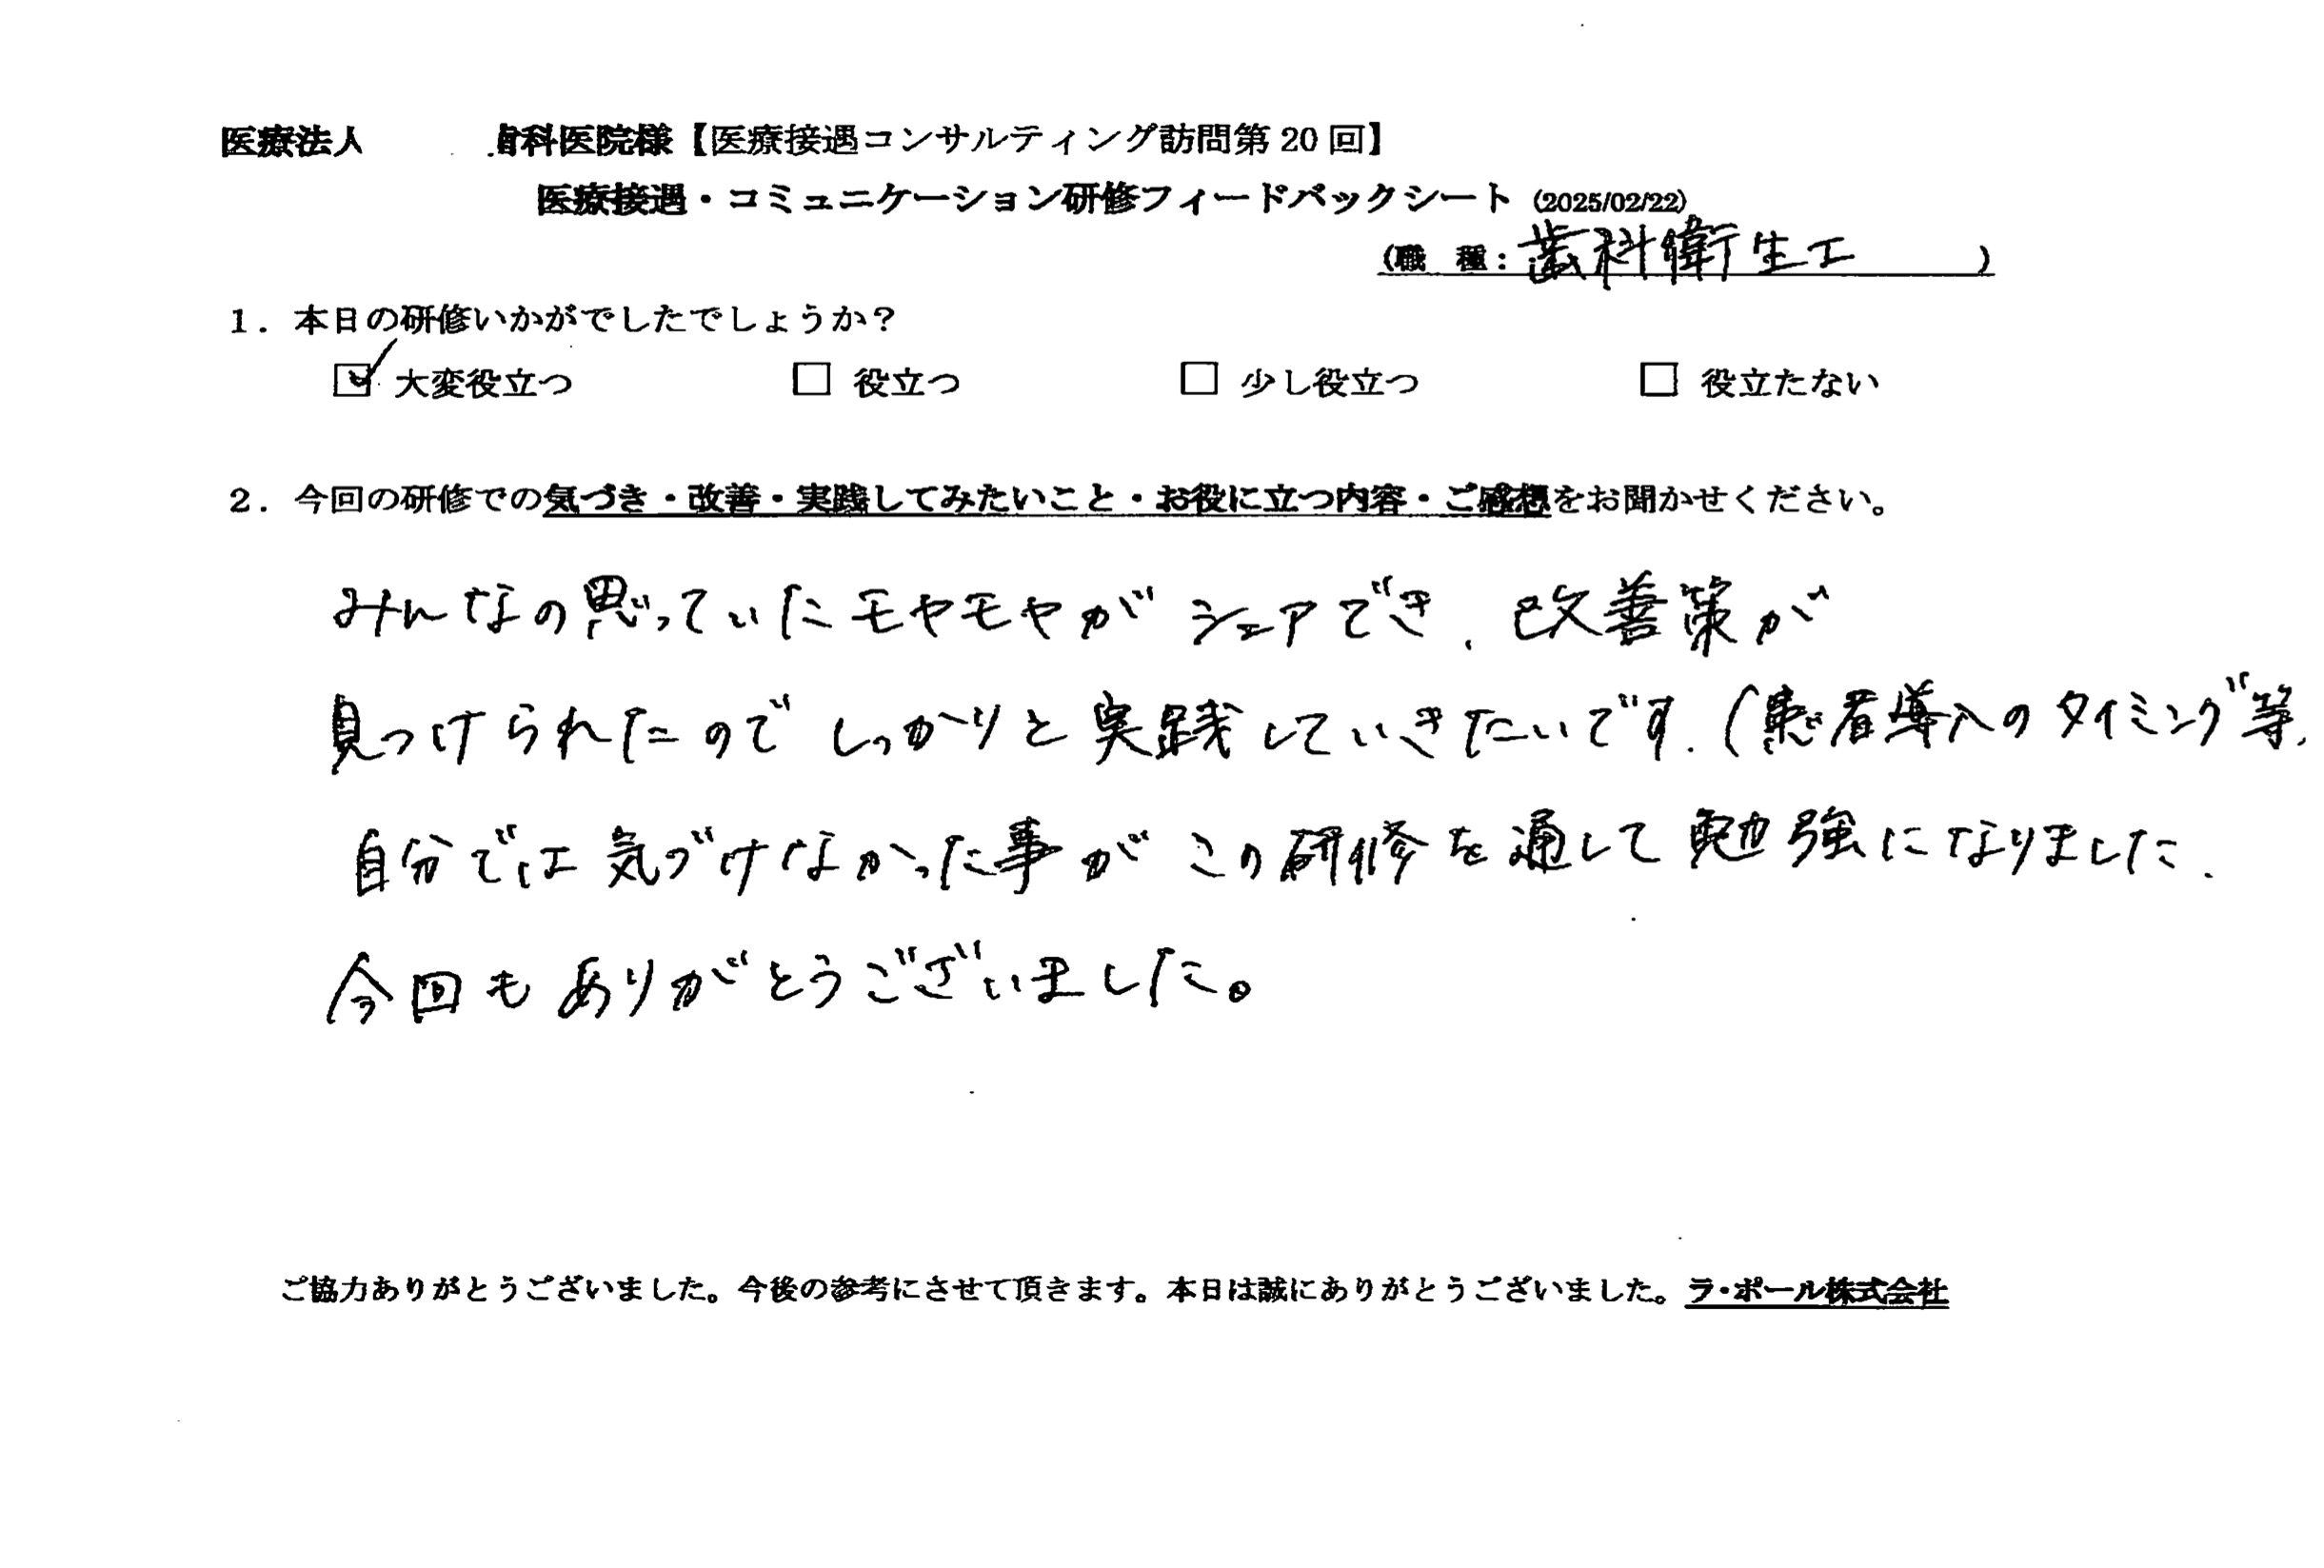 医療法人 歯科医院様【医療接遇コンサルティング訪問第20回】
医療接遇・コミュニケーション研修フィードバックシート（2025/02/22）
（職　種：歯科衛生士）
1．本日の研修いかがでしたでしょうか？
☑ 大変役立つ　□ 役立つ　□ 少し役立つ　□ 役立たない
2．今回の研修での気づき・改善・実践してみたいこと・お役に立つ内容・ご感想をお聞かせください。
みんなの思っていたモヤモヤがシェアでき、改善策が
見つけられたのでしっかりと実践していきたいです.（患者導入のタイミング等、
自分では気づけなかった事がこの研修を通して勉強になりました.
今回もありがとうございました。
ご協力ありがとうございました。今後の参考にさせて頂きます。本日は誠にありがとうございました。ラ・ポール株式会社